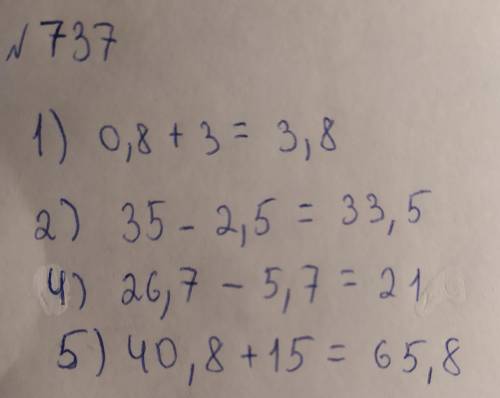 № 737
1) 0,8 + 3 = 3,8
2) 35 - 2,5 = 33,5
4) 26,7 - 5,7 = 21
5) 40,8 + 15 = 65,8